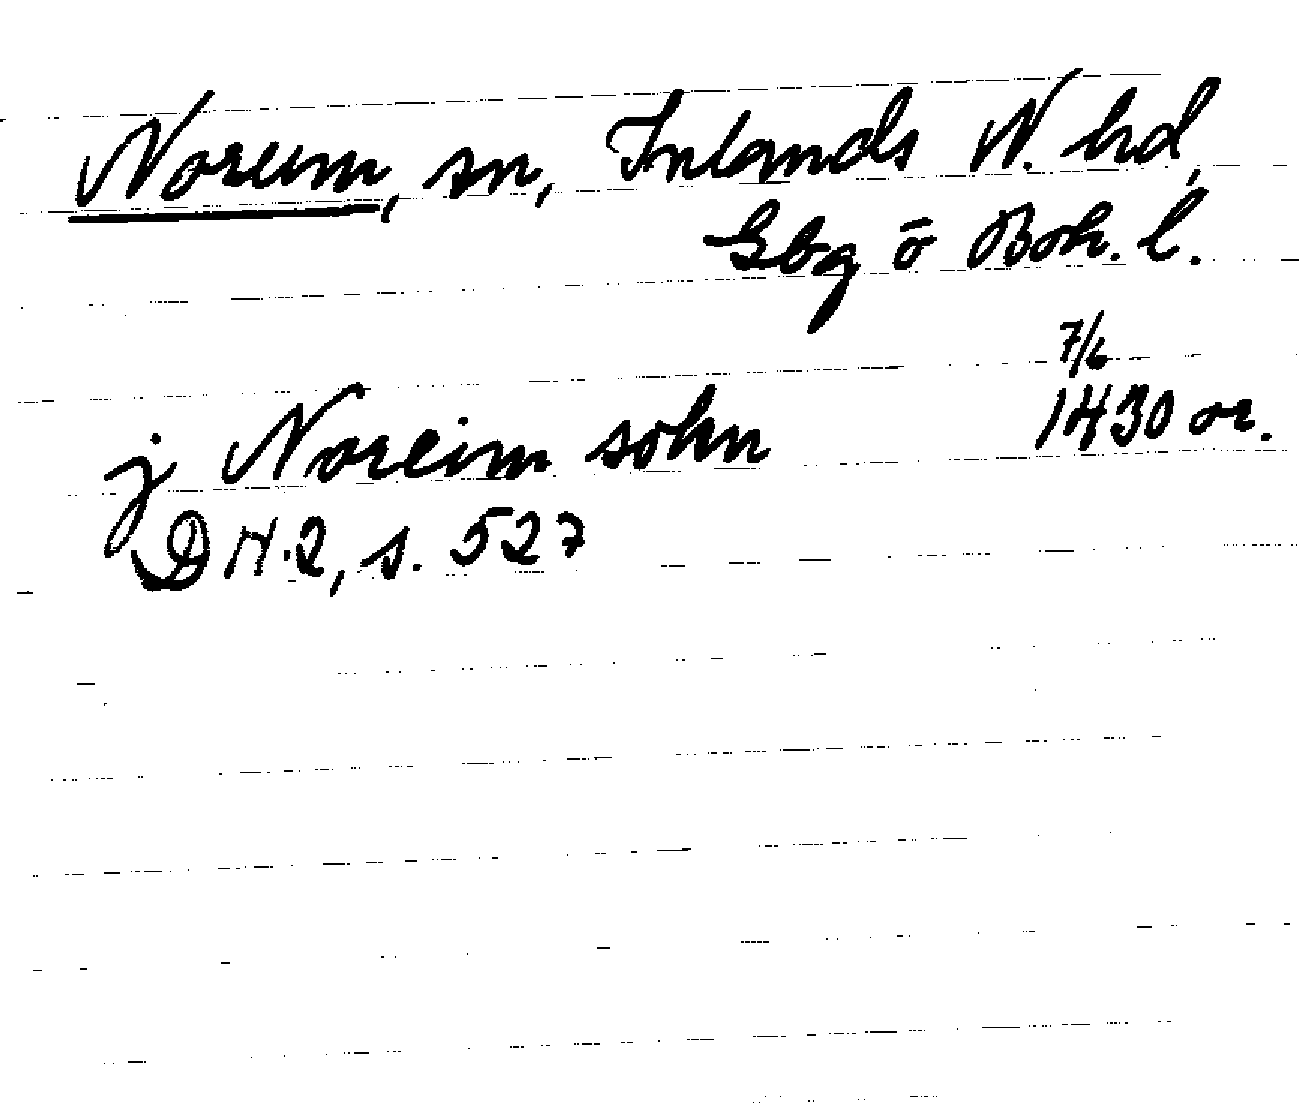 Noreum, sn, Inlands N. hd,
Gbg o Boh. l.
7/6
j Noreim sokn 1430 or.
DN 2, s. 527